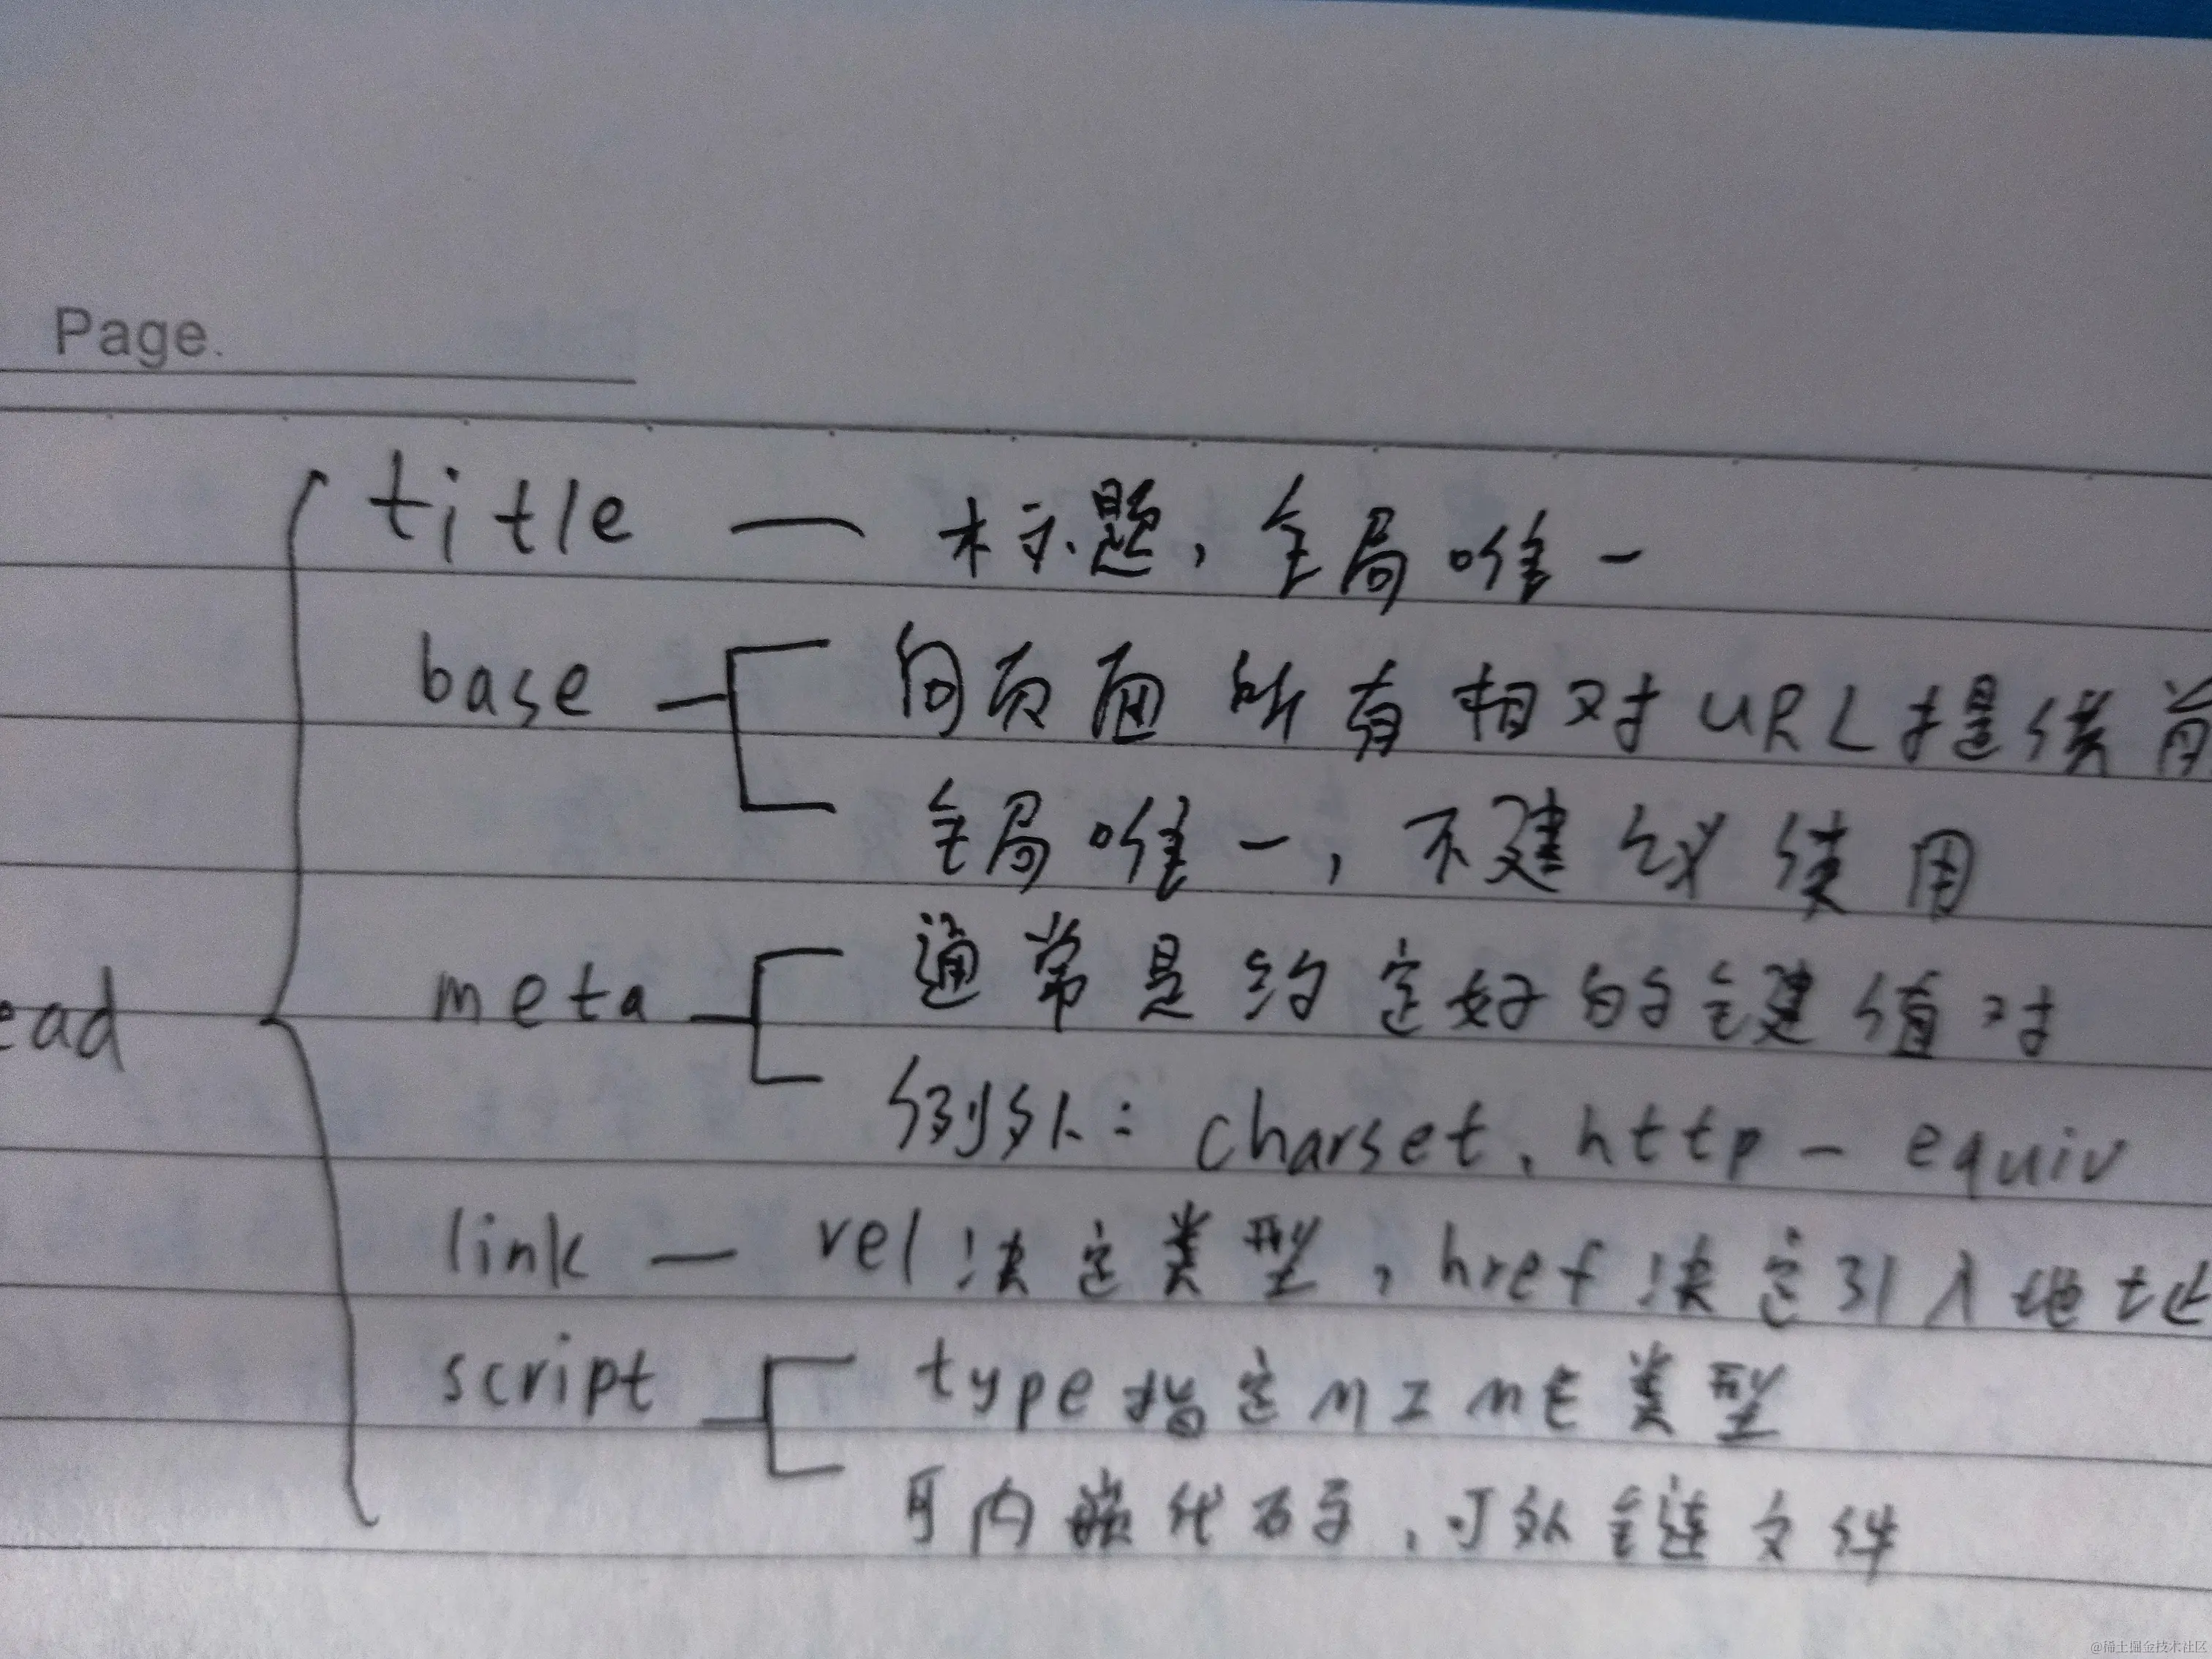 Page.
title — 标题，全局唯一
base — 向页面所有相对URL提供前
全局唯一，不建议使用
meta — 通常是约定好的键值对
ead
例外：charset、http-equiv
link — rel决定类型，href决定引入地址
script — type指定MIME类型
可内嵌代码，可外链文件
@稀土掘金技术社区